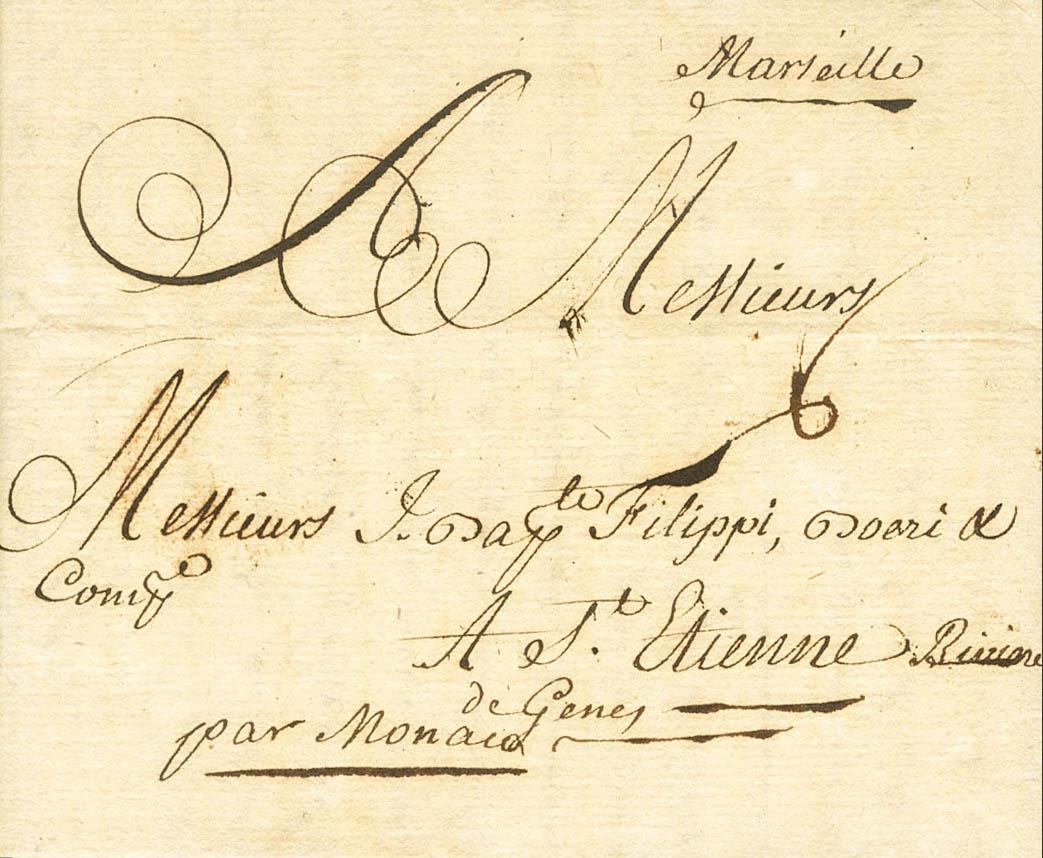 Marseille
A Messieurs
Messieurs J. Bap.te Filippi, Boeri &
Comp.e
A S.t Etienne Riviere
de Genes
par Monaco